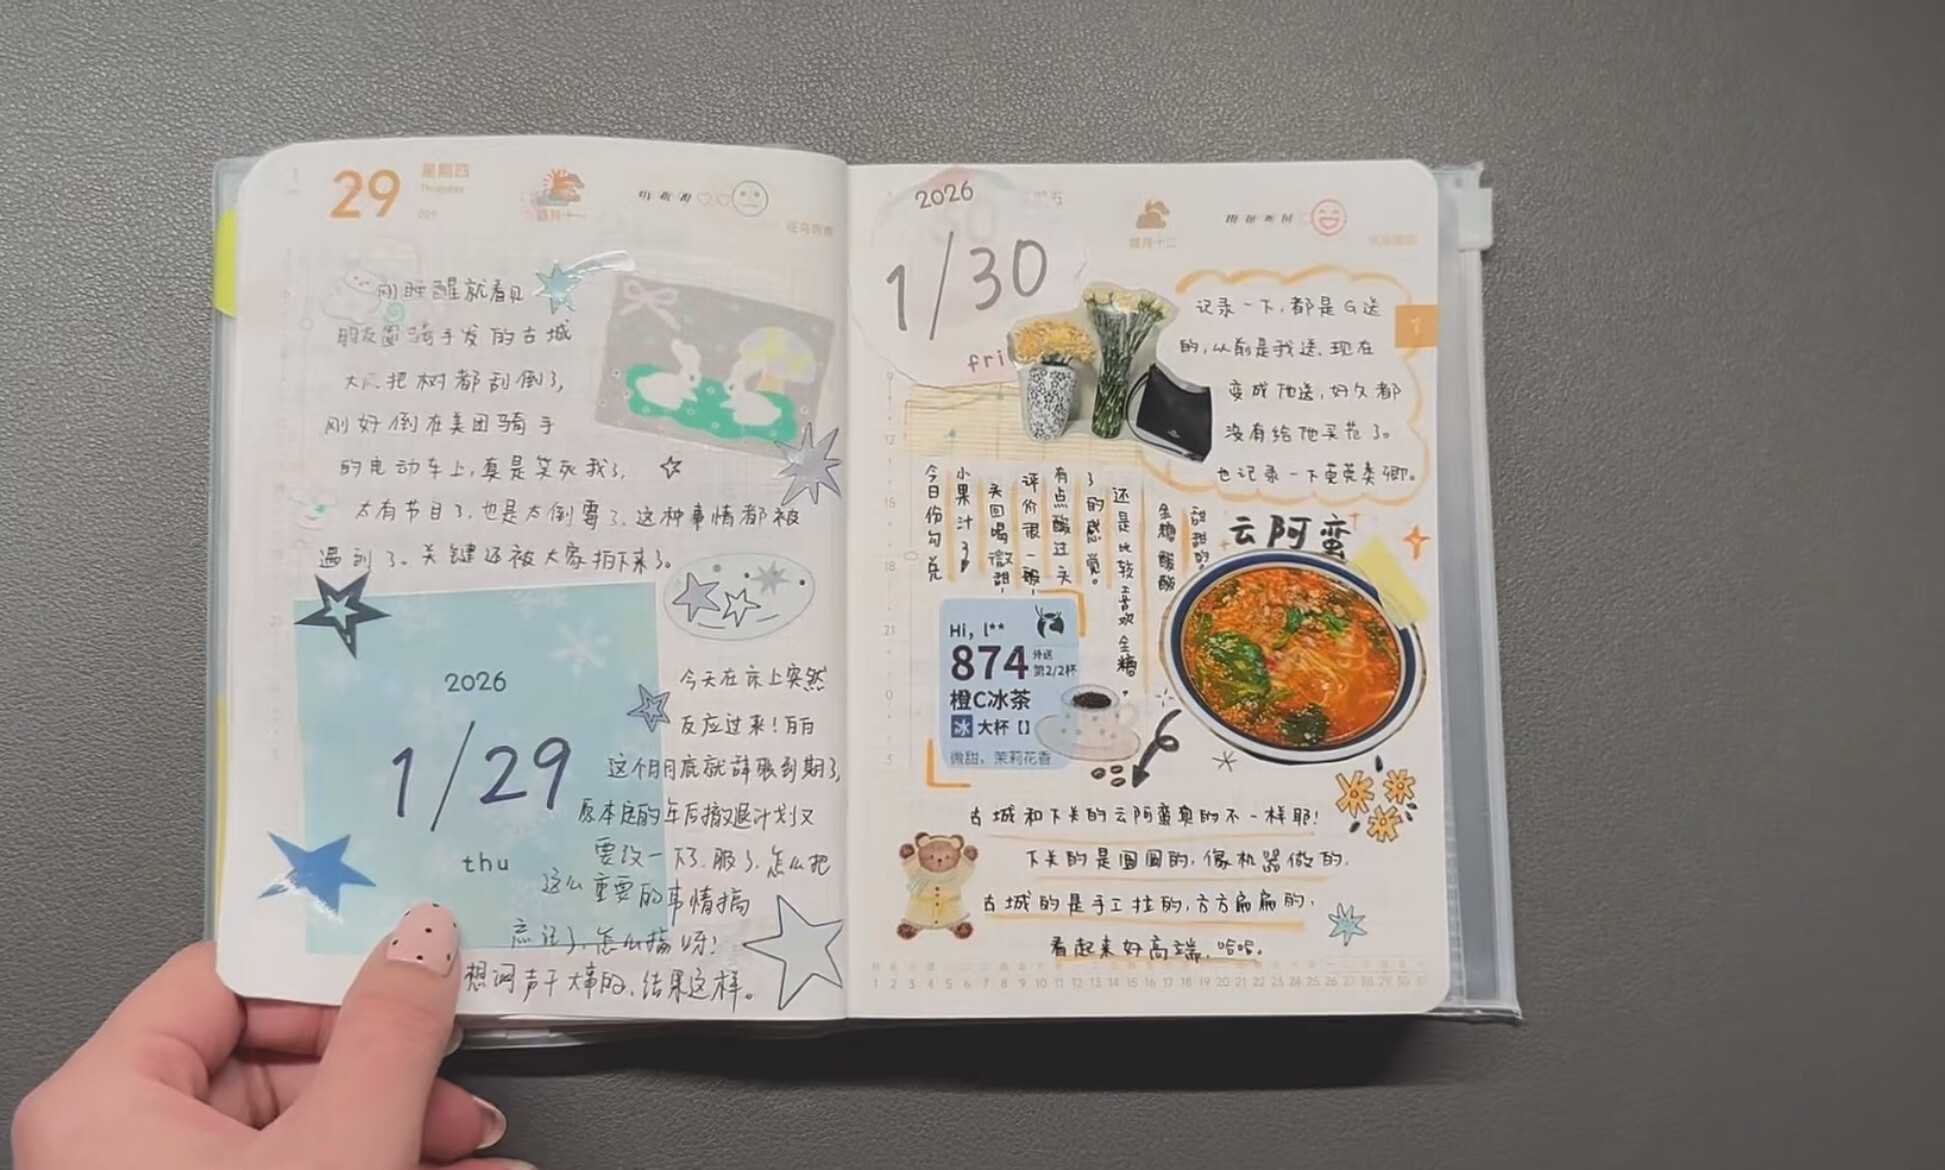 29
星期四
Thursday
029
腊月十一
刚睡醒就看见
朋友圈骑手发的古城
大风把树都刮倒了,
刚好倒在美团骑手
的电动车上,真是笑死我了,
太有节目了,也是太倒霉了,这种事情都被
遇到了。关键还被大家拍下来了。
2026
1/29
thu
今天在床上突然
反应过来!
这个月月底就辞职到期了,
原本定的年后撤退计划又
要改一下了.服了.怎么把
这么重要的事情搞
忘记了,怎么搞呀!
想闷声干大事的,结果这样。
2026
1/30
fri
腊月十二
记录一下,都是G送
的,从前是我送、现在
变成他送,好久都
没有给他买花了。
也记录一下
1
今日份勾兑
小果汁了
头回喝微甜,
评价很一般,
有点酸过头
了的感觉。
还是比较喜欢全糖。
全糖酸酸
甜甜的。
云阿蛮
Hi, l**
874
外送
第2/2杯
橙C冰茶
冰 大杯【】
微甜,茉莉花香
古城和下关的云阿蛮真的不一样耶!
下关的是圆圆的,像机器做的,
古城的是手工拉的,方方扁扁的,
看起来好高端,哈哈。
1 2 3 4 5 6 7 8 9 10 11 12 13 14 15 16 17 18 19 20 21 22 23 24 25 26 27 28 29 30 31